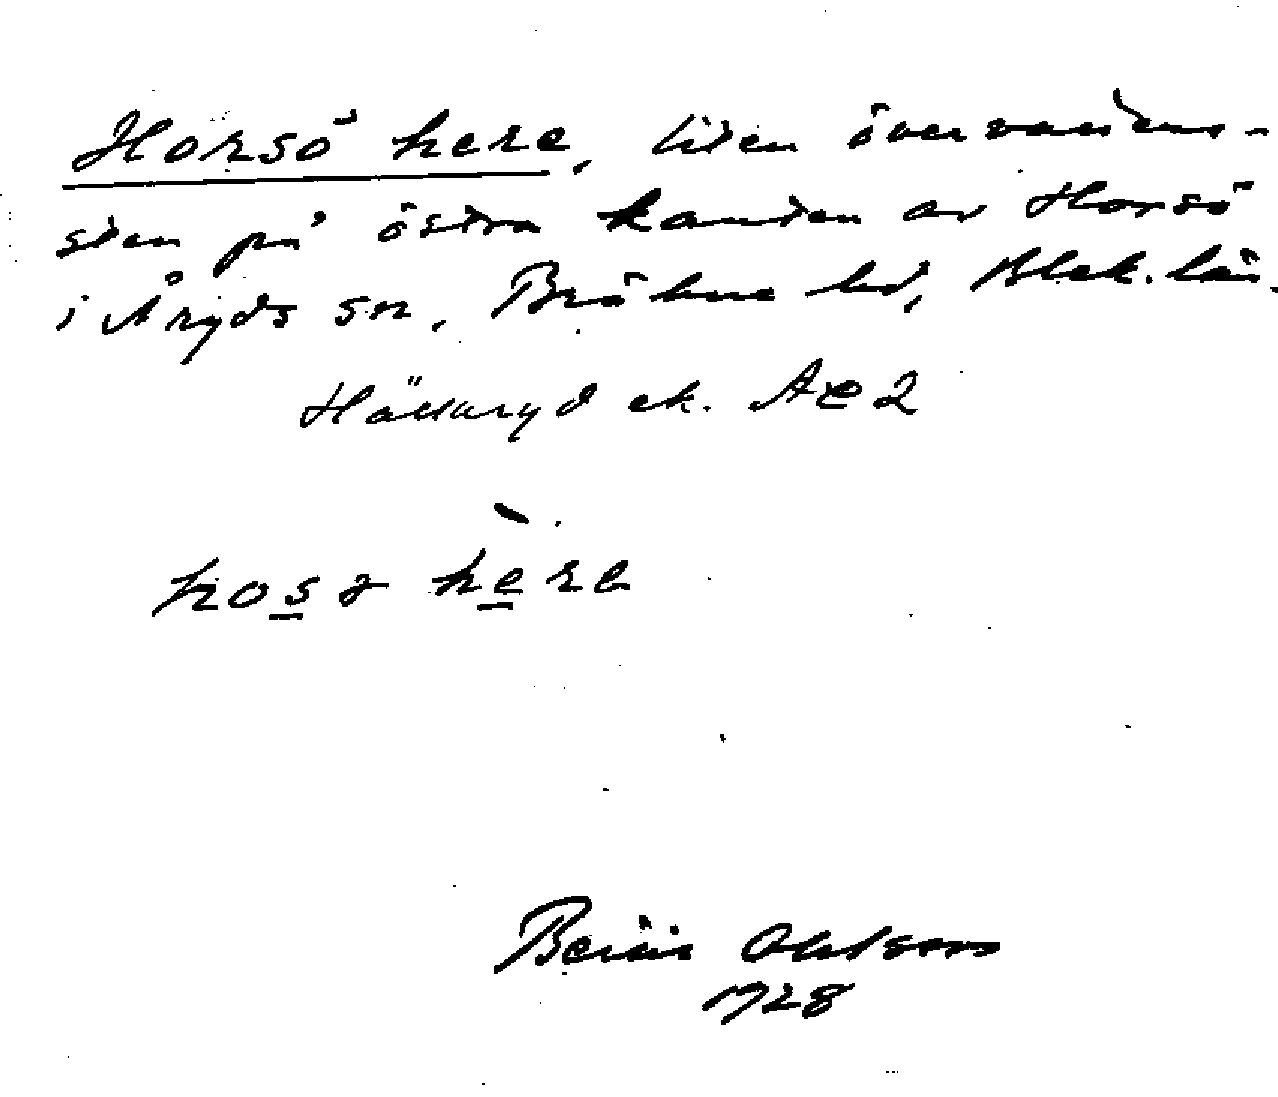 Horsö here, liten övervattens-
sten på östra kanten av Horsö
i Åryds sn, Bräkne hd, Blek. län.
Hällaryd ek. Ae2
hosə here
Bertil Ohlsson
1928